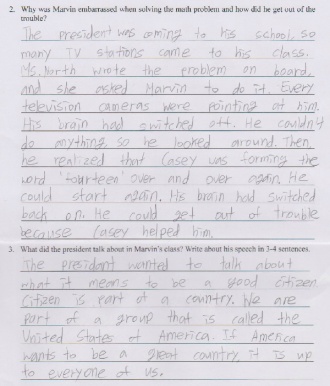 2. Why was Marvin embarrassed when solving the math problem and how did he get out of the
trouble?
The president was coming to his school, so
many TV stations came to his class.
Ms. North wrote the problem on board,
and she asked Marvin to do it. Every
television cameras were pointing at him.
His brain had switched off. He couldn't
do anything so he looked around. Then
he realized that Casey was forming the
word 'fourteen' over and over again. He
could start again. His brain had switched
back on. He could get out of trouble
because Casey helped him.
3. What did the president talk about in Marvin's class? Write about his speech in 3-4 sentences.
The president wanted to talk about
what it means to be a good citizen
Citizen is part of a country. We are
part of a group that is called the
United States of America. If America
wants to be a great country, it is up
to everyone of us.